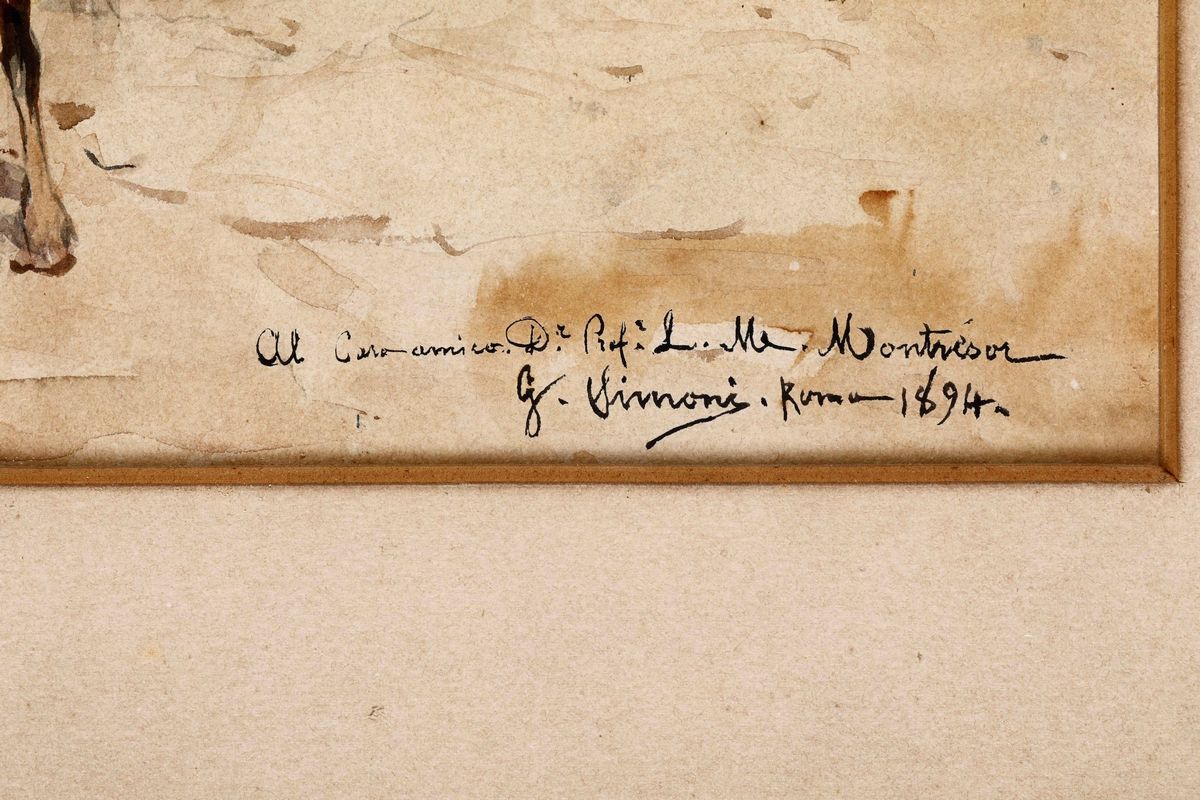 Al Caro amico. Dr. Prof. L. M. Montrésor
G. Simoni. Roma 1894.